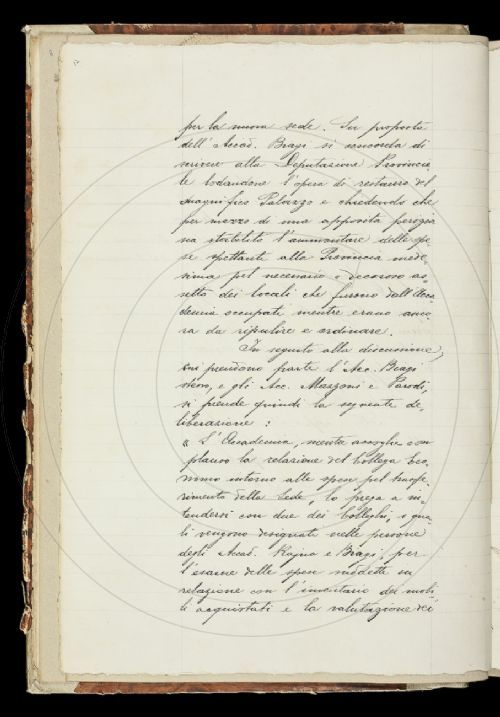 per la nuova sede. Su proposta
dell'Accad. Biagi si concorda di
scrivere alla Deputazione Provincia-
le lodandone l'opera di restauro del
magnifico Palazzo e chiedendo che
per mezzo di una apposita perizia
sia stabilito l'ammontare delle spe-
se spettante alla Provincia mede-
sima pel necessario e decoroso as-
setto dei locali che furono dall'Acca-
demia occupati mentre erano anco-
ra da ripulire e ordinare.
In seguito alla discussione,
cui prendono parte l'Acc. Biagi
stesso, e gli Acc. Mazzoni e Parodi,
si prende quindi la seguente de-
liberazione:
"L'Accademia, mentre accoglie con
plauso la relazione del Collega Eco-
nomo intorno alle spese pel trasfe-
rimento della Sede, lo prega a in-
tendersi con due dei Colleghi, i qua-
li vengono designati nelle persone
degli Accad. Rajna e Biagi, per
l'esame delle spese suddette in
relazione con l'inventario dei mobi-
li acquistati e la valutazione dei